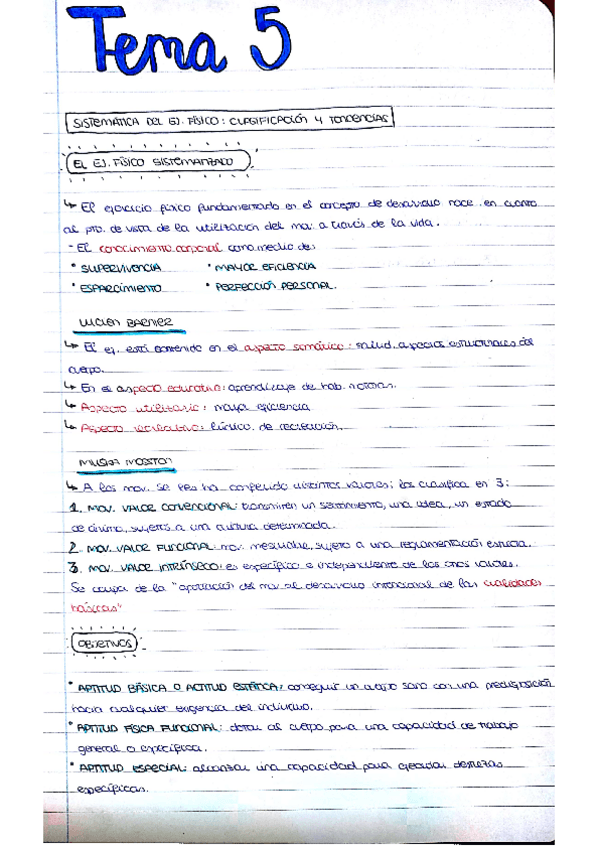 Tema 5
SISTEMÁTICA DEL EJ. FÍSICO: CLASIFICACIÓN Y TENDENCIAS
EL EJ. FÍSICO SISTEMATIZADO
↳ El ejercicio físico fundamentado en el concepto de desarrollo nace en cuanto
al pto. de vista de la utilización del mov. a través de la vida.
- El conocimiento corporal como medio de:
• SUPERVIVENCIA • MAYOR EFICIENCIA
• ESPARCIMIENTO • PERFECCIÓN PERSONAL.
↳ El ej. está contenido en el aspecto somático: salud, aspectos estructurales del
cuerpo.
↳ En el aspecto educativo: aprendizaje de hab. motoras.
↳ Aspecto utilitario: mayor eficiencia
↳ Aspecto recreativo: de recreación.
MUSKA MOSSTON
↳ A los mov. se les ha conferido distintos valores; los clasifica en 3:
1. MOV. VALOR CONVENCIONAL: transmiten un sentimiento, una idea, un estado
de ánimo, sujetos a una cultura determinada.
2. MOV. VALOR FUNCIONAL: mov. mesurable, sujeto a una reglamentación estricta.
3. MOV. VALOR INTRÍNSECO: es específico e independiente de los otros valores.
Se ocupa de la "aportación del mov. al desarrollo intencional de las cualidades
básicas"
OBJETIVOS
• APTITUD BÁSICA O ACTITUD ESTÁTICA: conseguir un cuerpo sano con una predisposición
hacia cualquier exigencia del individuo.
• APTITUD FÍSICA FUNCIONAL: dotar al cuerpo para una capacidad de trabajo
general o específica.
• APTITUD ESPECIAL: alcanzar una capacidad para ejecutar destrezas
específicas.